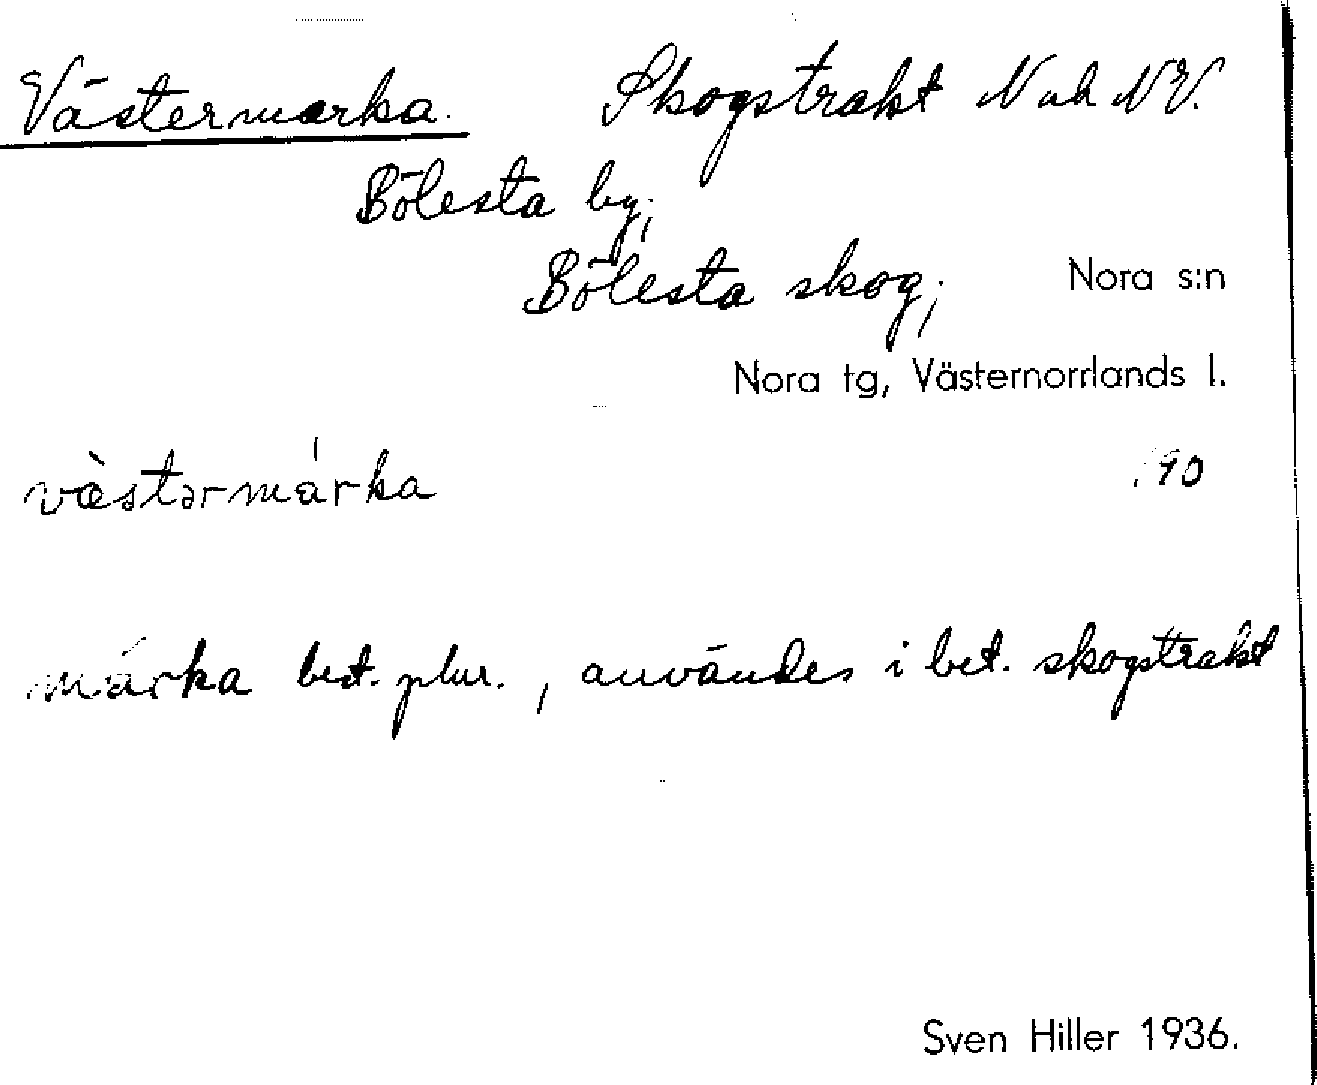 Västermarka. Skogstrakt N och NV.
Bölesta by;
Bölesta skog; Nora s:n
Nora tg, Västernorrlands l.
vàstərmárka 190
márka best. plur., användes i bet. skogstrakt
Sven Hiller 1936.